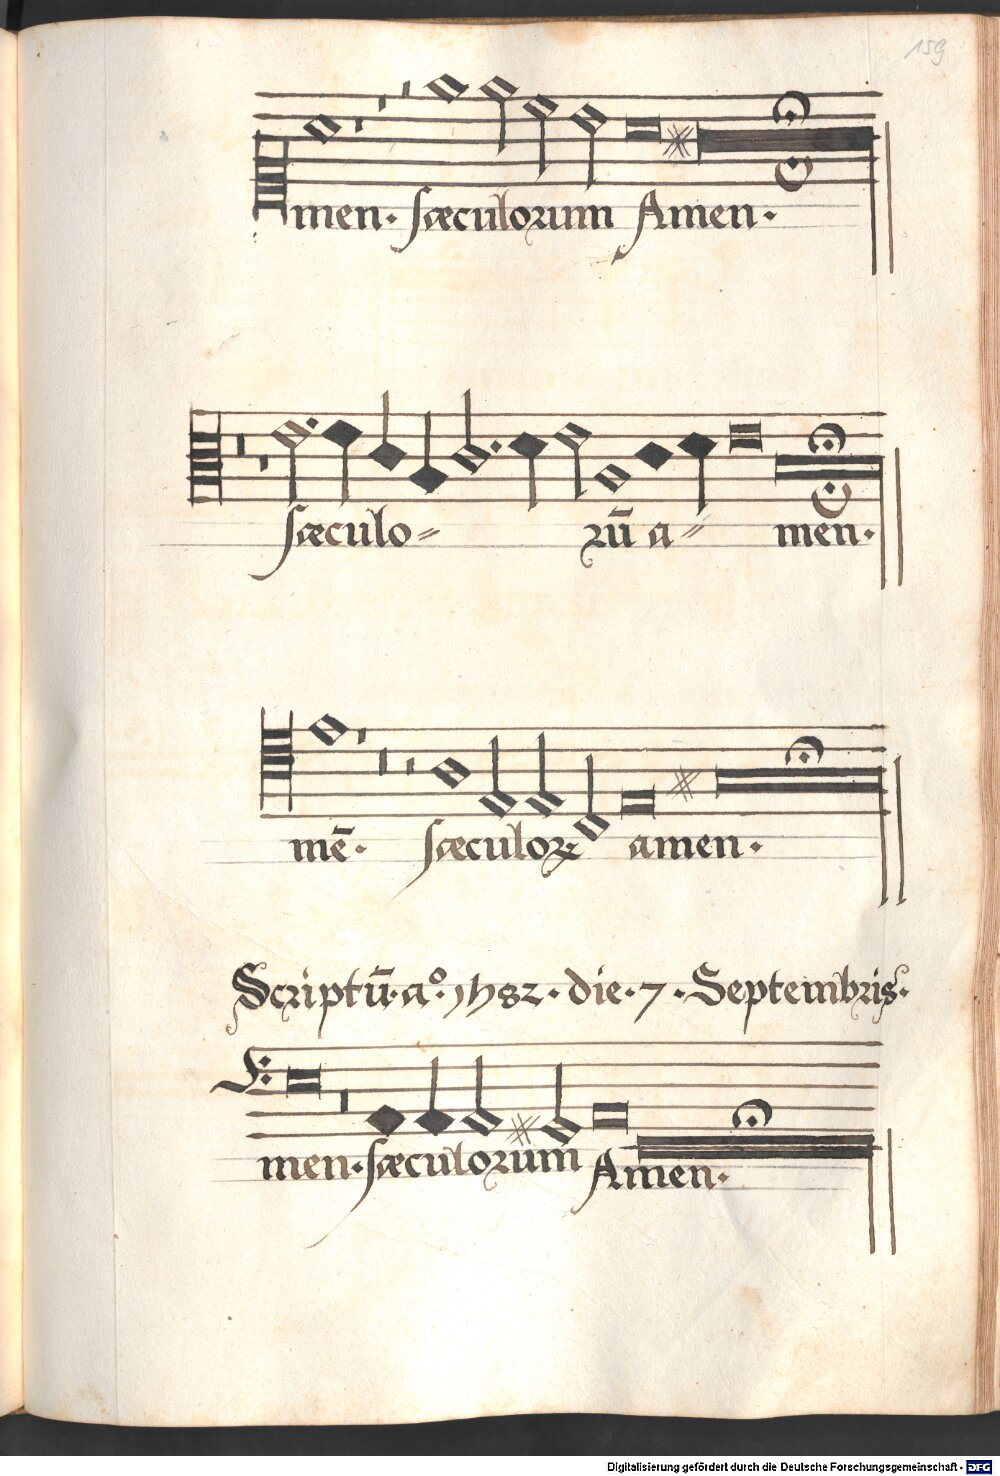 159
men. sæculorum Amen.
sæculo= rū a= men.
mē. sæculoꝝ amen.
Scriptū. aº. 1582. die. 7. Septembris.
men. sæculorum Amen.
Digitalisierung gefördert durch die Deutsche Forschungsgemeinschaft - DFG